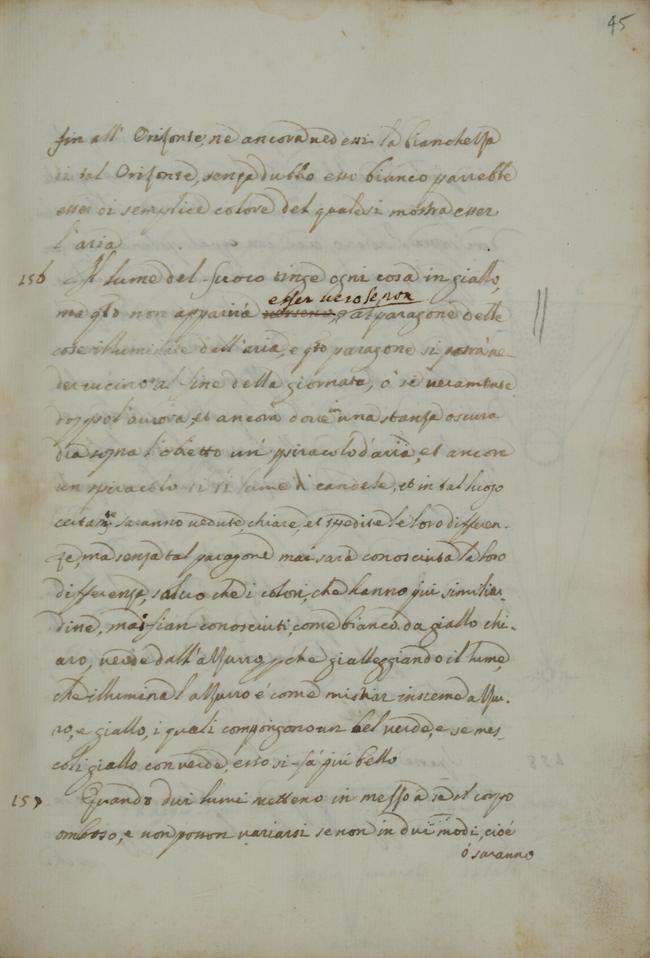 45
fin all' Orizonte, ne ancora vedessi la bianchezza
di tal Orizonte, senza dubbo esso bianco parrebbe
esser di semplice colore del quale si mostra esser
l'aria.
156 Il lume del fuoco tinge ogni cosa in giallo,
esser vero se non
ma qto non apparirà al paragone delle
cose illuminate dall'aria, e qto paragone si potrà ve-
der vicino al fine della giornata, ó si veramente
doppo l'aurora, et ancora dove in una stanza oscura
dia sopra l'obietto un' spiracolo d'aria, et ancore
un spiracolo di lume di candele, et in tal luogo
certamte saranno vedute, chiare, et spedite le loro differen-
ze, ma senza tal paragone mai sarà conosciuta la loro
differenza, salvo che i colori, che hanno più similitu-
dine, mai sian conosciuti, come bianco da giallo chi-
aro, verde dall'azzurro, pche gialleggiando il lume,
che illumina l'azzurro é come mistiar insieme azzu-
ro, e giallo, i quali compongono un bel verde, e se mes-
coli giallo con verde, esso si fà più bello
157 Quando dui lumi metteno in mezzo à sé il corpo
ombroso, e non posson variarsi se non in dui modi, cioè
ó saranno